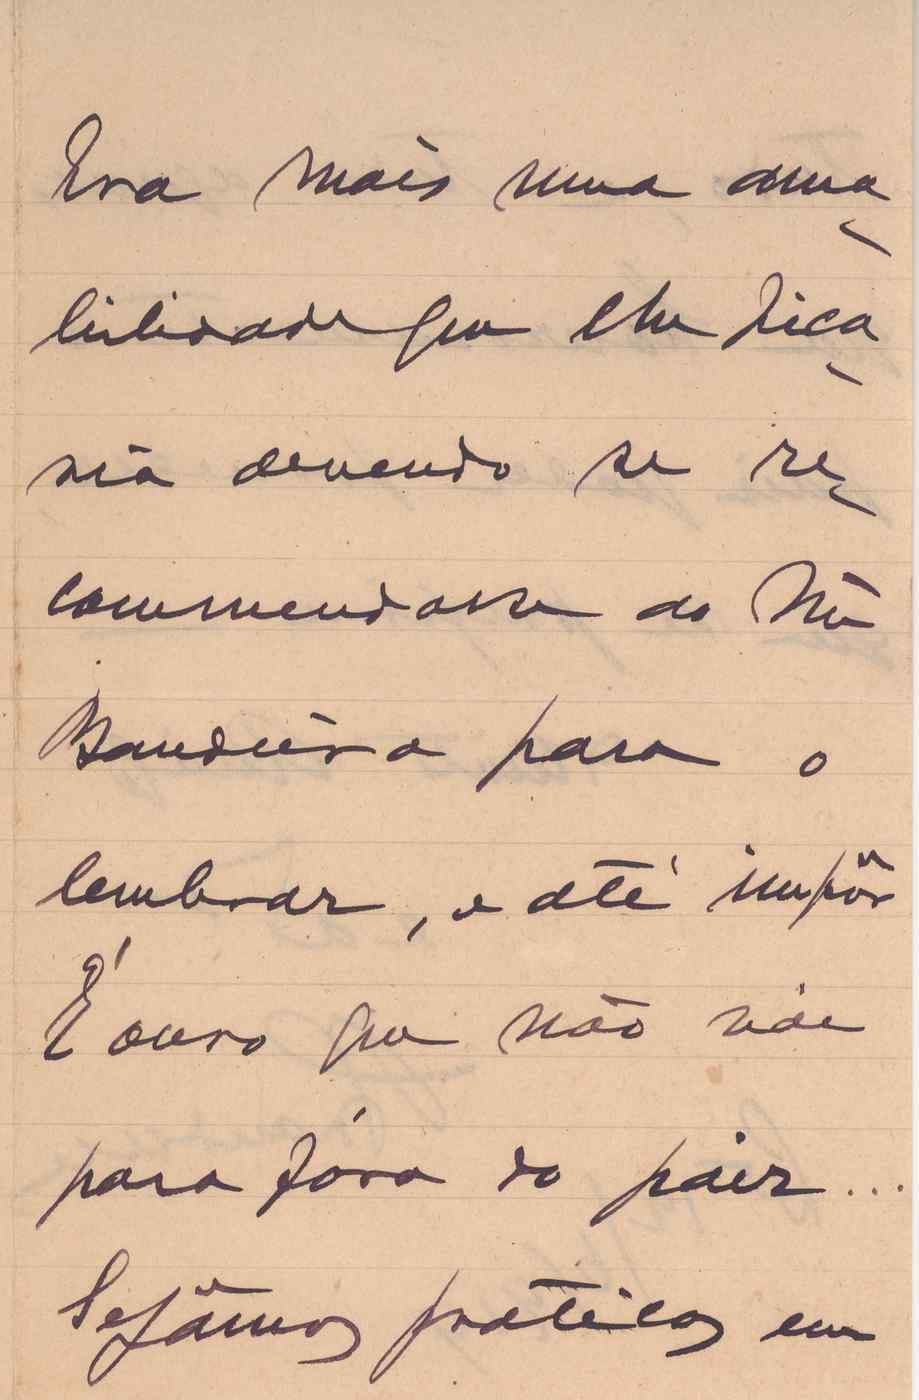 Era mais uma ama-
bilidade que lhe fica-
ria devendo se re-
commendasse ao
Bandeira para o
lembrar, e até impôr
É ouro que não vae
para fóra do páiz...
Sejâmos práticos em